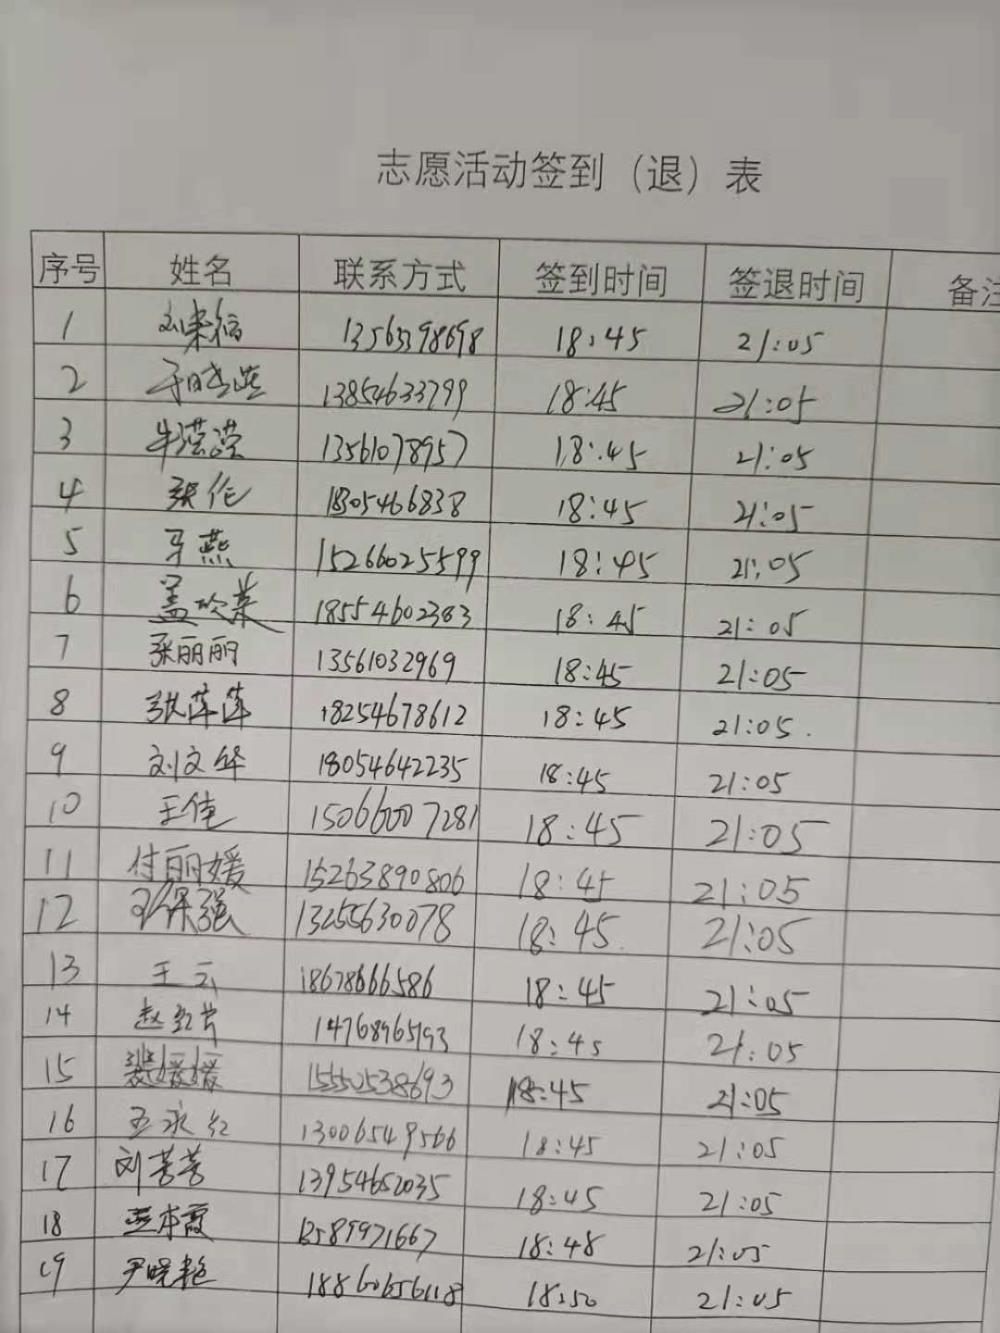 志愿活动签到（退）表
序号 姓名 联系方式 签到时间 签退时间 备注
1 刘来福 13565398698 18:45 21:05
2 于晓燕 13854633799 18:45 21:05
3 牛滢滢 13561078957 18:45 21:05
4 张伦 1805466838 18:45 21:05
5 马燕 15266025599 18:45 21:05
6 盖欣菜 18554602383 18:45 21:05
7 张丽丽 13561032969 18:45 21:05
8 张萍萍 18254678612 18:45 21:05.
9 刘文华 18054642235 18:45 21:05
10 王倩 15066007281 18:45 21:05
11 付丽媛 15263890806 18:45 21:05
12 保强 13255630078 18:45 21:05
13 王云 18678666586 18:45 21:05
14 赵红芳 14768965193 18:45 21:05
15 裴媛媛 15552538693 18:45 21:05
16 王永红 13006549566 18:45 21:05
17 刘苦苦 13954652035 18:45 21:05
18 本霞 13589971667 18:48 21:05
19 尹晓艳 18860656118 18:50 21:05